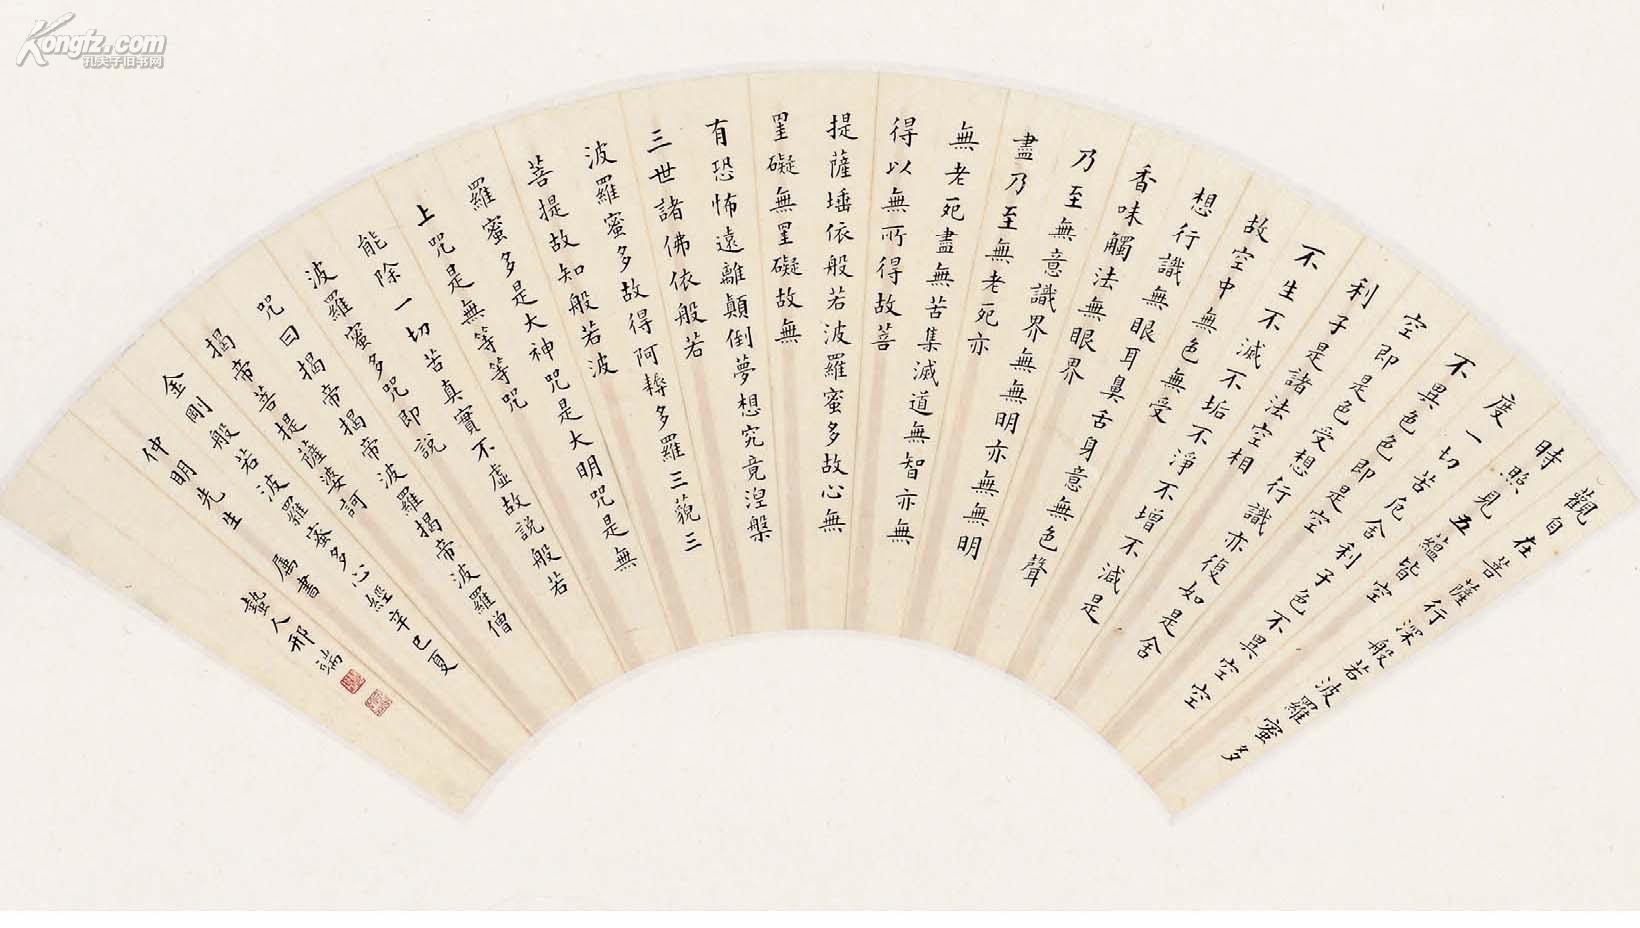 Kongfz.com
孔夫子旧书网
觀自在菩薩行深般若波羅蜜多
時照見五蘊皆空
度一切苦厄舍利子色不異空空
不異色色即是空
空即是色受想行識亦復如是舍
利子是諸法空相
不生不滅不垢不淨不增不減是
故空中無色無受
想行識無眼耳鼻舌身意無色聲
香味觸法無眼界
乃至無意識界無無明亦無無明
盡乃至無老死亦
無老死盡無苦集滅道無智亦無
得以無所得故菩
提薩埵依般若波羅蜜多故心無
罣礙無罣礙故無
有恐怖遠離顛倒夢想究竟涅槃
三世諸佛依般若
波羅蜜多故得阿耨多羅三藐三
菩提故知般若波
羅蜜多是大神咒是大明咒是無
上咒是無等等咒
能除一切苦真實不虛故説般若
波羅蜜多咒即説
咒曰揭帝揭帝波羅揭帝波羅僧
揭帝菩提薩婆訶
金剛般若波羅蜜多心經辛巳夏
仲明先生 属書
蟄人邢端